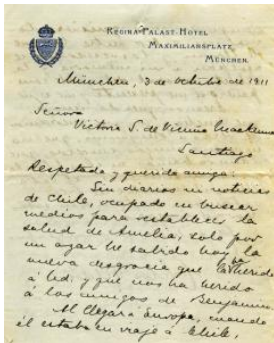 REGINA-PALAST-HOTEL
MAXIMILIANSPLATZ
MÜNCHEN.
München, 3 de octubre de 1911
Señora
Victoria S. de Vicuña Mackenna
Santiago
Respetada y querida amiga:
Sin diarios ni noticias
de Chile, ocupado en buscar
medios para establecer la
salud de Amelia, solo por
un azar he sabido hoy la
nueva desgracia que ha herido
á Ud. y que nos ha herido
á los amigos de Benjamin.
Al llegar á Europa, cuando
él estaba en viaje á Chile,